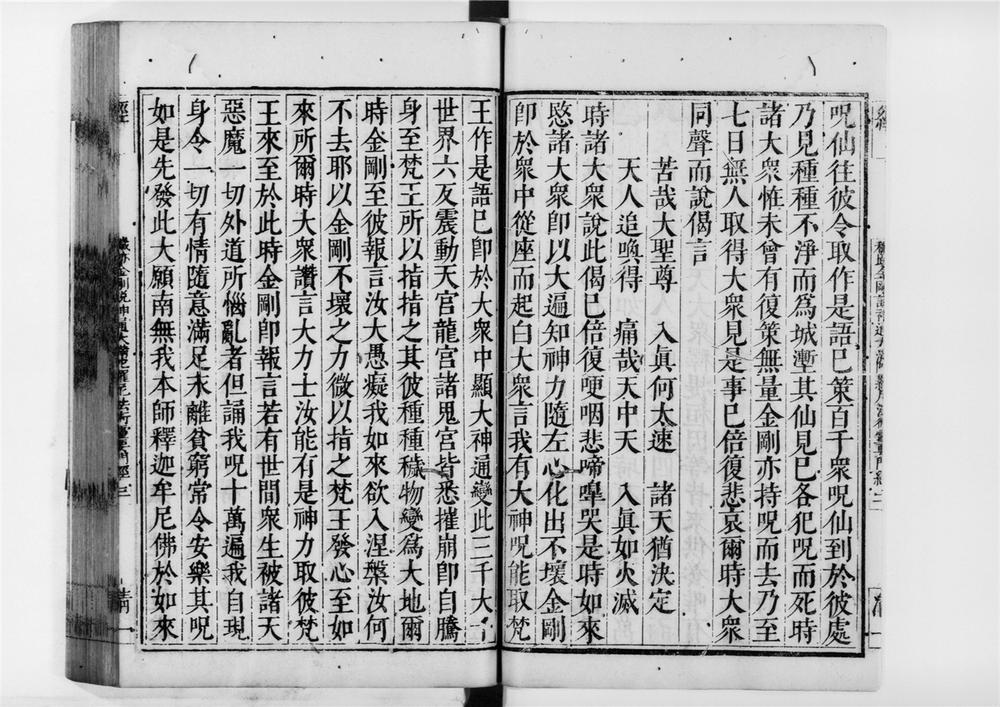 呪仙往彼令取作是語已策百千衆呪仙到於彼處
乃見種種不淨而爲城塹其仙見已各犯呪而死時
諸大衆惟未曾有復策無量金剛亦持呪而去乃至
七日無人取得大衆見是事已倍復悲哀爾時大衆
同聲而說偈言
苦哉大聖尊　入眞何太速　諸天猶決定
天人追喚得　痛哉天中天　入眞如火滅
時諸大衆說此偈已倍復哽咽悲啼嘷哭是時如來
愍諸大衆卽以大遍知神力隨左心化出不壞金剛
卽於衆中從座而起白大衆言我有大神呪能取梵
王作是語已卽於大衆中顯大神通變此三千大千
世界六反震動天宮龍宮諸鬼宮皆悉摧崩卽自騰
身至梵王所以指指之其彼種種穢物變爲大地爾
時金剛至彼報言汝大愚癡我如來欲入涅槃汝何
不去耶以金剛不壞之力微以指之梵王發心至如
來所爾時大衆讚言大力士汝能有是神力取彼梵
王來至於此時金剛卽報言若有世間衆生被諸天
惡魔一切外道所惱亂者但誦我呪十萬遍我自現
身令一切有情隨意滿足永離貧窮常令安樂其呪
如是先發此大願南無我本師釋迦牟尼佛於如來